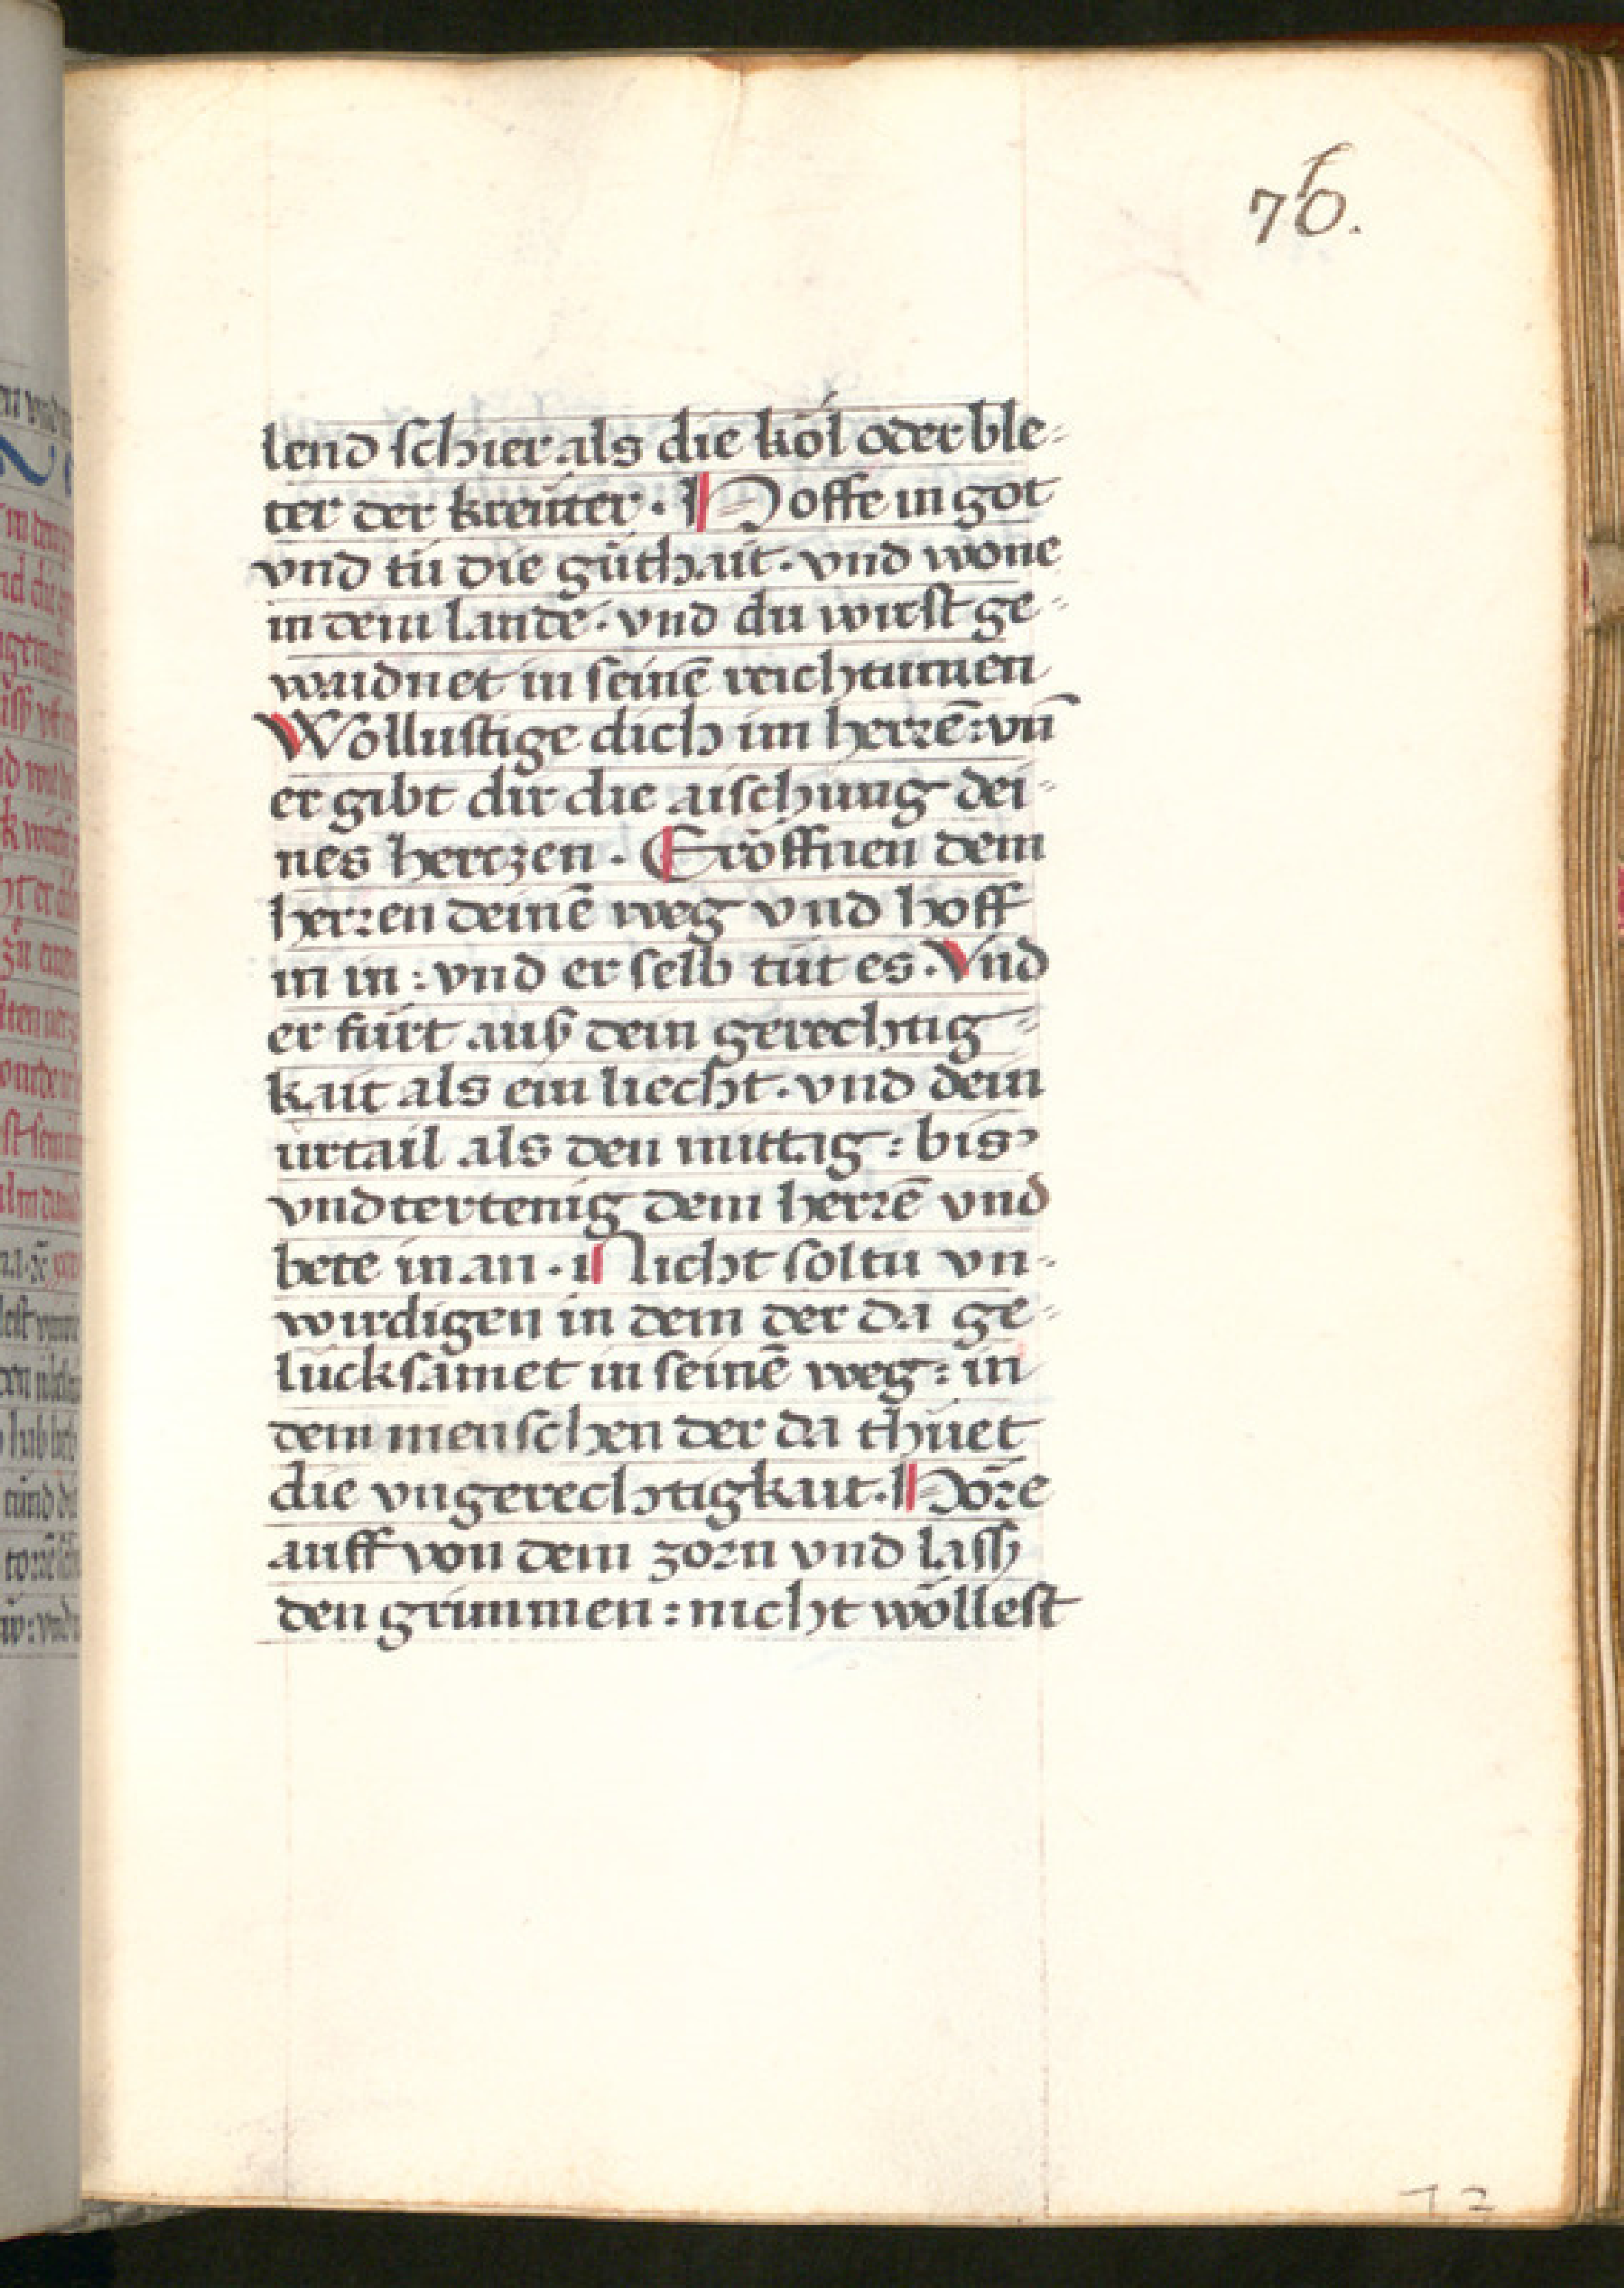 76.
lend schier als die köl oder ble-
ter der kreüter. Hoffe in got
vnd tü die güthait. vnd wone
in dem lande. vnd du wirst ge-
waidnet in seinē reichtumen
Wollustige dich im herrē: vn̄
er gibt dir die aischung dei-
nes hertzen. Eröffnen dem
herren deinē weg vnd hoff
in in: vnd er selb tüt es. Vnd
er fürt auß dein gerechtig-
kait als ein liecht. vnd dein
urtail als den mittag: bis
vndtertenig dem herrē vnd
bete in an. Nicht soltu vn-
wirdigen in dem der da ge-
lücksamet in seinē weg: in
dem menschen der da thüet
die vngerechtigkait. Höre
auff von dem zorn vnd lassz
den grimmen: nicht wöllest